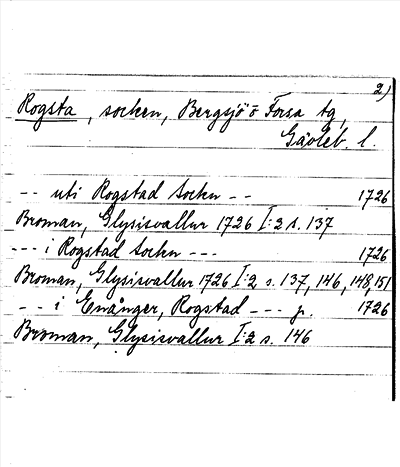 2)
Rogsta, socken, Bergsjö o Forsa tg,
Gävleb l.
-- uti Rogstad Sockn -- 1726
Broman, Glysisvallur 1726 I:2 s. 137
--- i Rogstad Sockn --- 1726
Broman, Glysisvallur 1726 I:2 s. 137, 146, 148, 151
-- i Enånger, Rogstad --- p. 1726
Broman, Glysisvallur I:2 s. 146